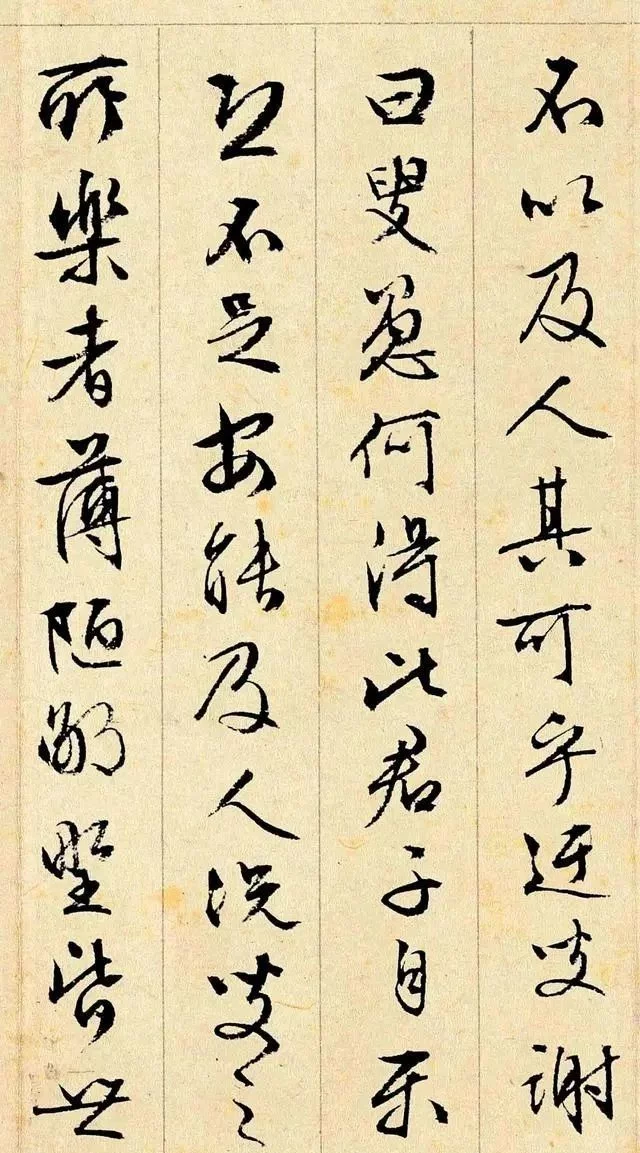 不以及人其可乎迂叟謝
曰叟愚何得比君子自樂
恐不足安能及人況叟之
所樂者薄陋鄙野皆世